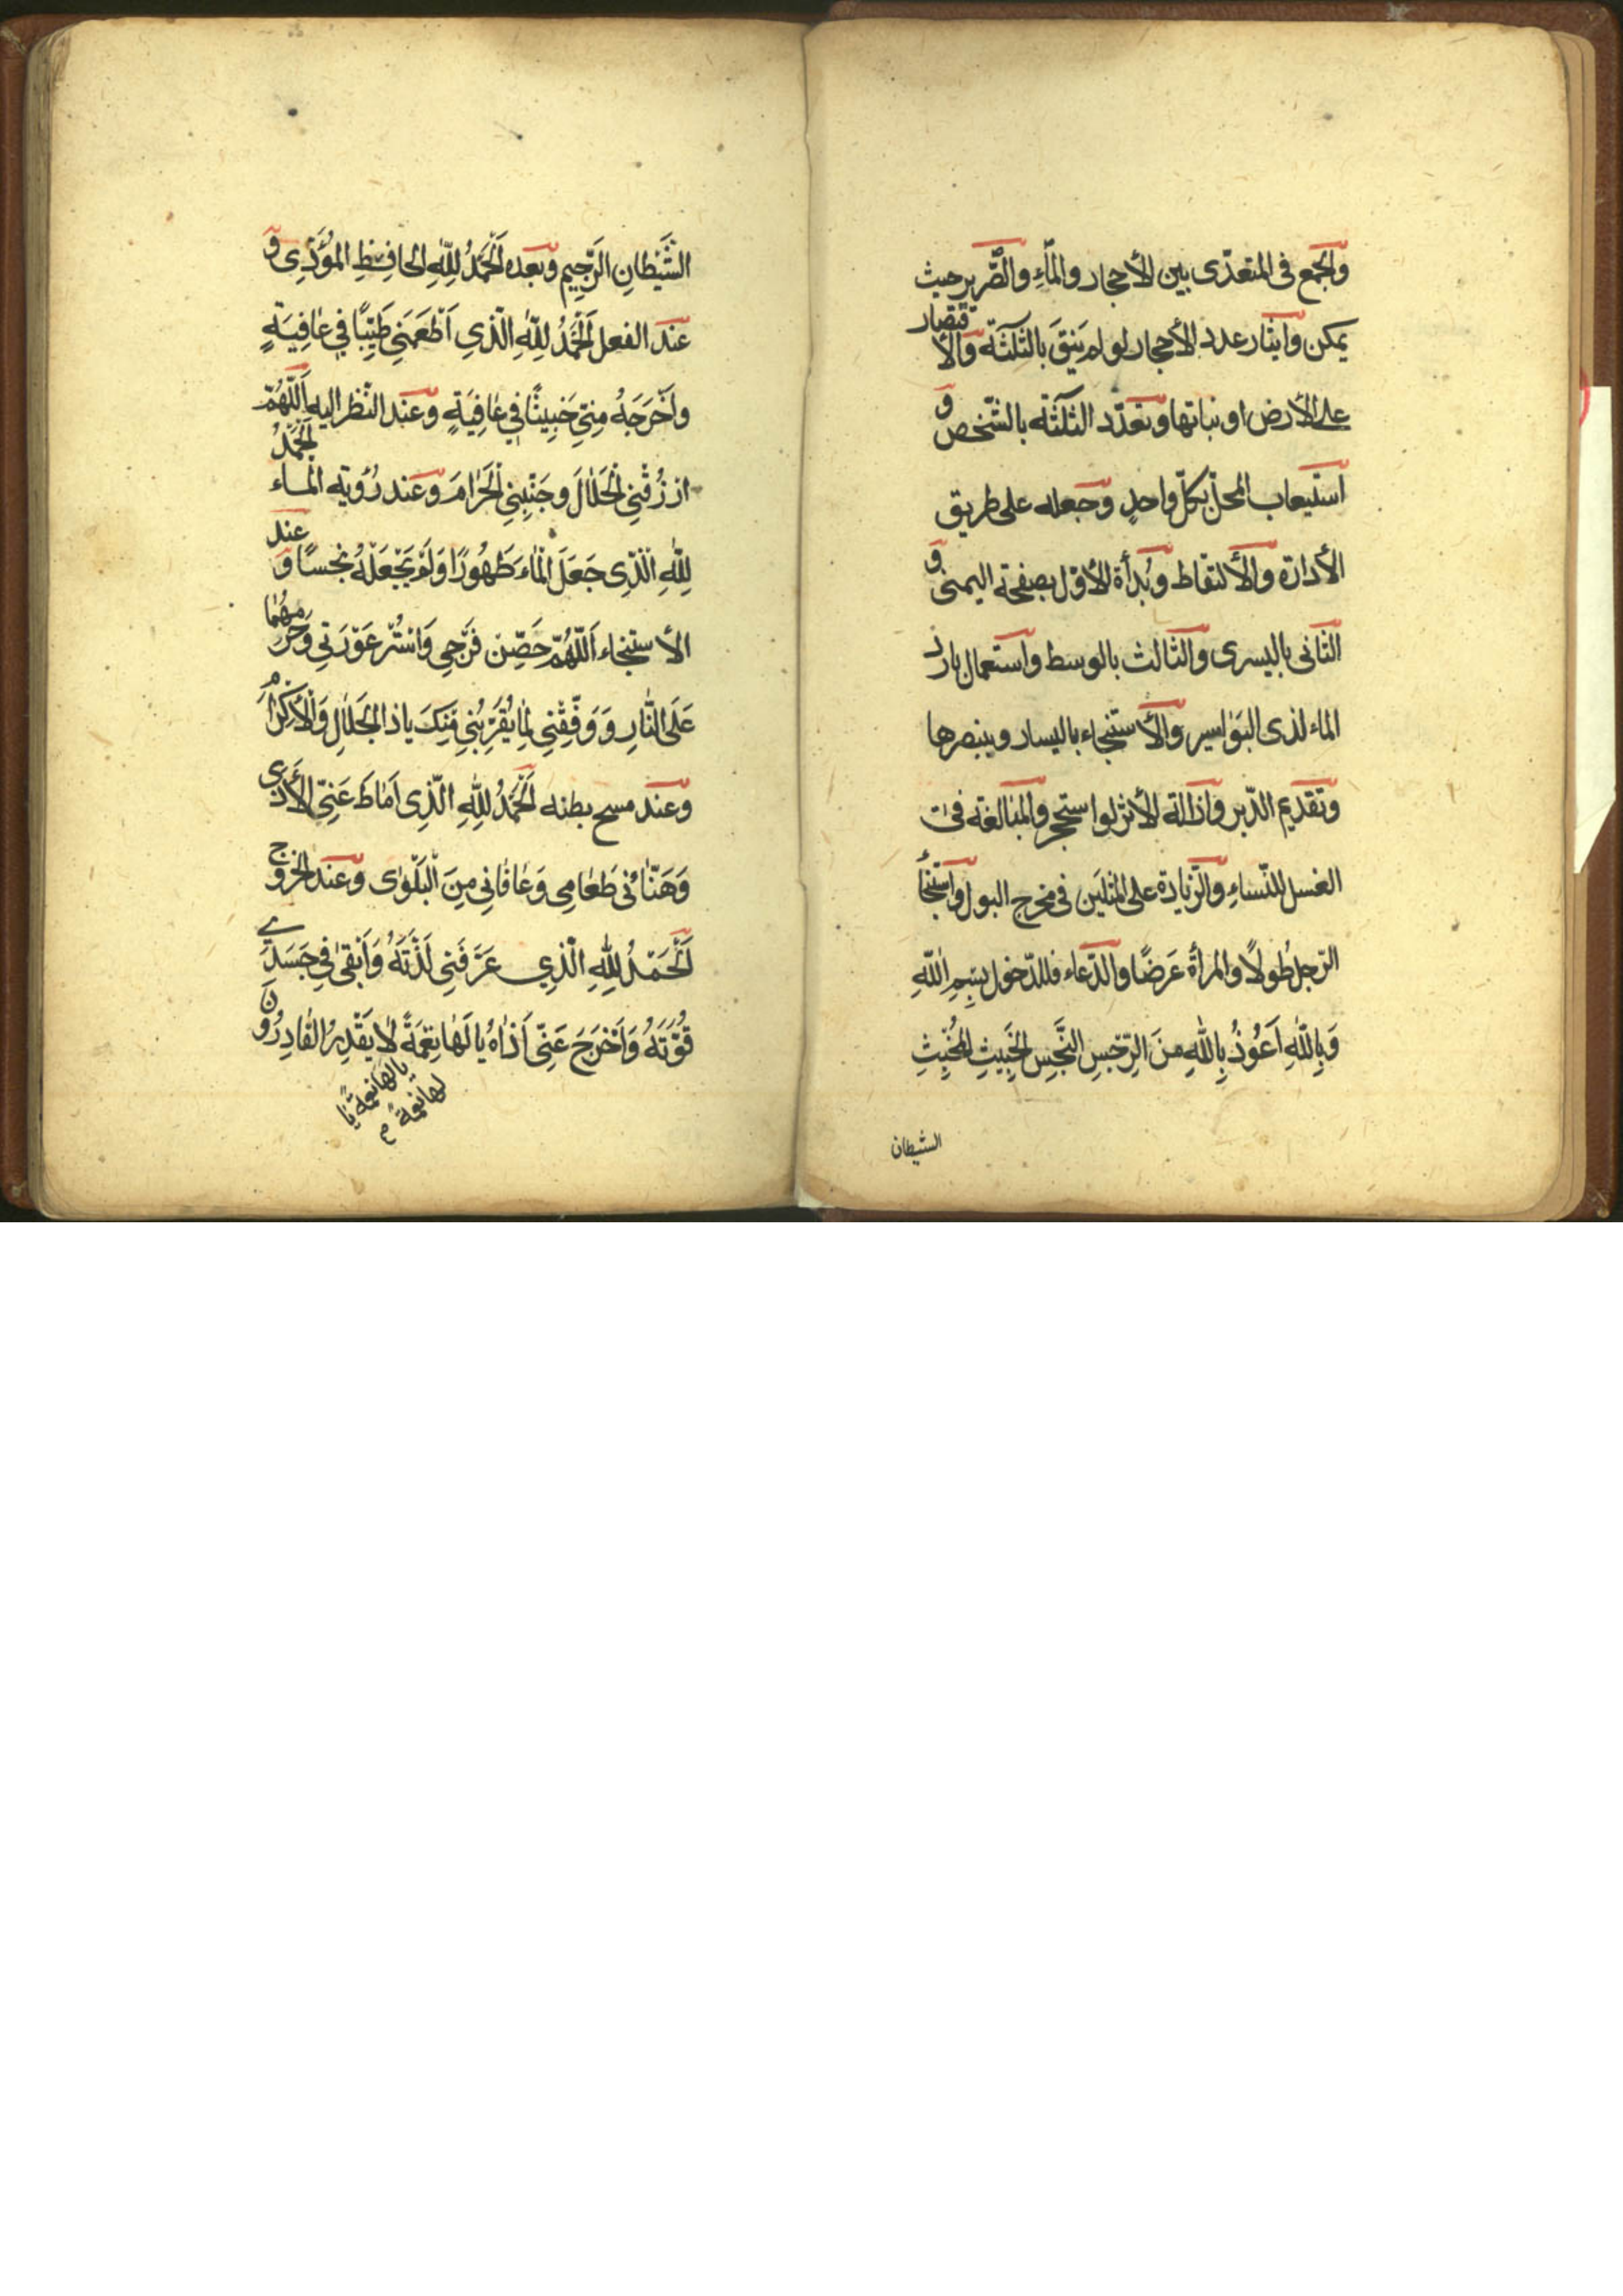 والجمع فى المتعدّى بين الأحجار والمآءِ والصّرير حيث
يمكن وايتار عدد الأحجار لو لم يَنقَ بالثّلثة والأقتصار
على الأرض او نباتها وتعدّد الثلثة بالشّخص و
استيعاب المحلّ بكلّ واحدٍ وجعله على طريق
الأدارة والألتقاط وبُدأة الأوّل بصفحته اليمنى و
الثّانى باليسرى والثّالث بالوسط واستعمال بارد
الماء لذى البَوٰاسير والأستنجاء باليسار وببنصرها
وتقديم الدّبر وازالة الأثر لو استجمر والمبٰالغة فى
الغسل للنّساءِ والزّيادة على المثلَين فى مخرج البول واستنجأ
الرّجل طُولاً والمرأة عَرضًا والدّعاء فللدّخول بِسْمِ اللّٰهِ
وَبِاللّٰهِ اَعُوذُ بِاللّٰهِ مِنَ الرِّجْسِ النَّجِسِ الخَبِيثِ المُخْبِثِ
الشيطان
الشَّيْطانِ الرَّجِيمِ وبعده اَلْحَمْدُ لِلّٰهِ الحافِظِ المُؤَدّى و
عند الفعل اَلْحَمْدُ لِلّٰهِ الّذِي اَطْعَمَنِي طَيِّبًا فِي عٰافِيَةٍ
وَاَخْرَجَهُ مِنّي خَبِيثًا فِي عٰافِيَةٍ وعند النّظر اليه اَللّهُمَّ
ارْزُقْنِي الْحَلٰالَ وجَنِّبْنِي الْحَرٰامَ وعند رُؤية المٰاء اَلْحَمْدُ
لِلّٰهِ الَّذِى جَعَلَ الْمٰاءَ طَهُورًا وَلَمْ يَجْعَلْهُ نَجِسًا و عند
الأستنجاء اَللّٰهُمَّ حَصِّن فَرْجِي وَاسْتُرْ عَوْرَتِي وَحَرِّمْهُمٰا
عَلَى النّٰارِ وَ وَفِّقْنِي لِمٰا يُقَرِّبُنِي مِنكَ ياذا الْجَلٰالِ وَالْأكْرٰامِ
وعند مسح بطنه اَلْحَمْدُ لِلّٰهِ الَّذِى اَمٰاطَ عَنِّي الأَذٰى
وَهَنّٰأَنى طَعٰامِى وَعٰافٰانِي مِنَ الْبَلْوٰى وعند الخروج
اَلْحَمْدُ لِلّٰهِ الَّذِي عَرَّفَنِي لَذَّتَهُ وَاَبْقىٰ فِي جَسَدِي
قُوَّتَهُ وَاَخْرَجَ عَنِّي اَذٰاهُ يا لَهٰا نِعْمَةً لاٰ يَقْدِرُ القٰادِرُونَ
يا لها نعمة يا
لها نعمة م